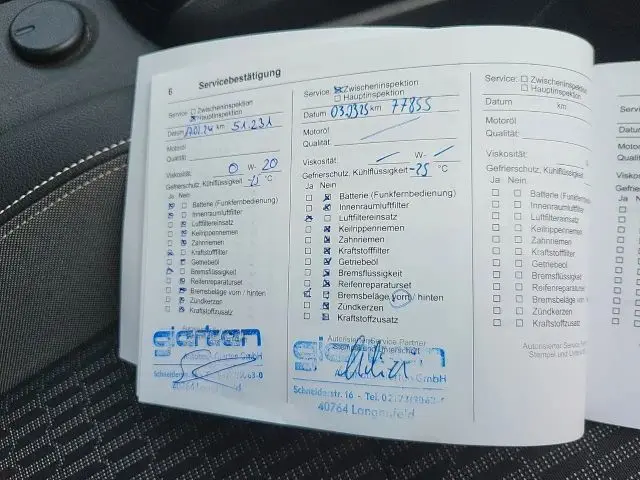 6 Servicebestätigung
Service: Zwischeninspektion
Hauptinspektion
Datum 51.231
Motoröl
Qualität:
Viskosität: 0 W- 20
Gefrierschutz, Kühlflüssigkeit -25 °C
Ja Nein
Batterie (Funkfernbedienung)
Innenraumluftfilter
Luftfiltereinsatz
Keilrippenriemen
Zahnriemen
Kraftstofffilter
Getriebeöl
Bremsflüssigkeit
Reifenreparaturset
Bremsbeläge vorn / hinten
Zündkerzen
Kraftstoffzusatz
gierten
GmbH
40764 Langenfeld
Service: Zwischeninspektion
Hauptinspektion
Datum 03.2325 km 77855
Motoröl
Qualität:
Viskosität: W-
Gefrierschutz, Kühlflüssigkeit -25 °C
Ja Nein
Batterie (Funkfernbedienung)
Innenraumluftfilter
Luftfiltereinsatz
Keilrippenriemen
Zahnriemen
Kraftstofffilter
Getriebeöl
Bremsflüssigkeit
Reifenreparaturset
Bremsbeläge vorn / hinten
Zündkerzen
Kraftstoffzusatz
Autorisierter Service Partner
Stempel und Unterschrift
GmbH
Schneiderstr. 16 - Tel.
40764 Langenfeld
Service: Zwischeninspektion
Hauptinspektion
Datum km
Motoröl
Qualität:
Viskosität:
Gefrierschutz, Kühlflüssigkeit
Ja Nein
Batterie (Funkfernbedienung)
Innenraumluftfilter
Luftfiltereinsatz
Keilrippenriemen
Zahnriemen
Kraftstofffilter
Getriebeöl
Bremsflüssigkeit
Reifenreparaturset
Bremsbeläge vorn / hinten
Zündkerzen
Kraftstoffzusatz
Autorisierter
Stempel und
Service:
Datum
Motoröl
Qualität:
Viskosität:
Ja